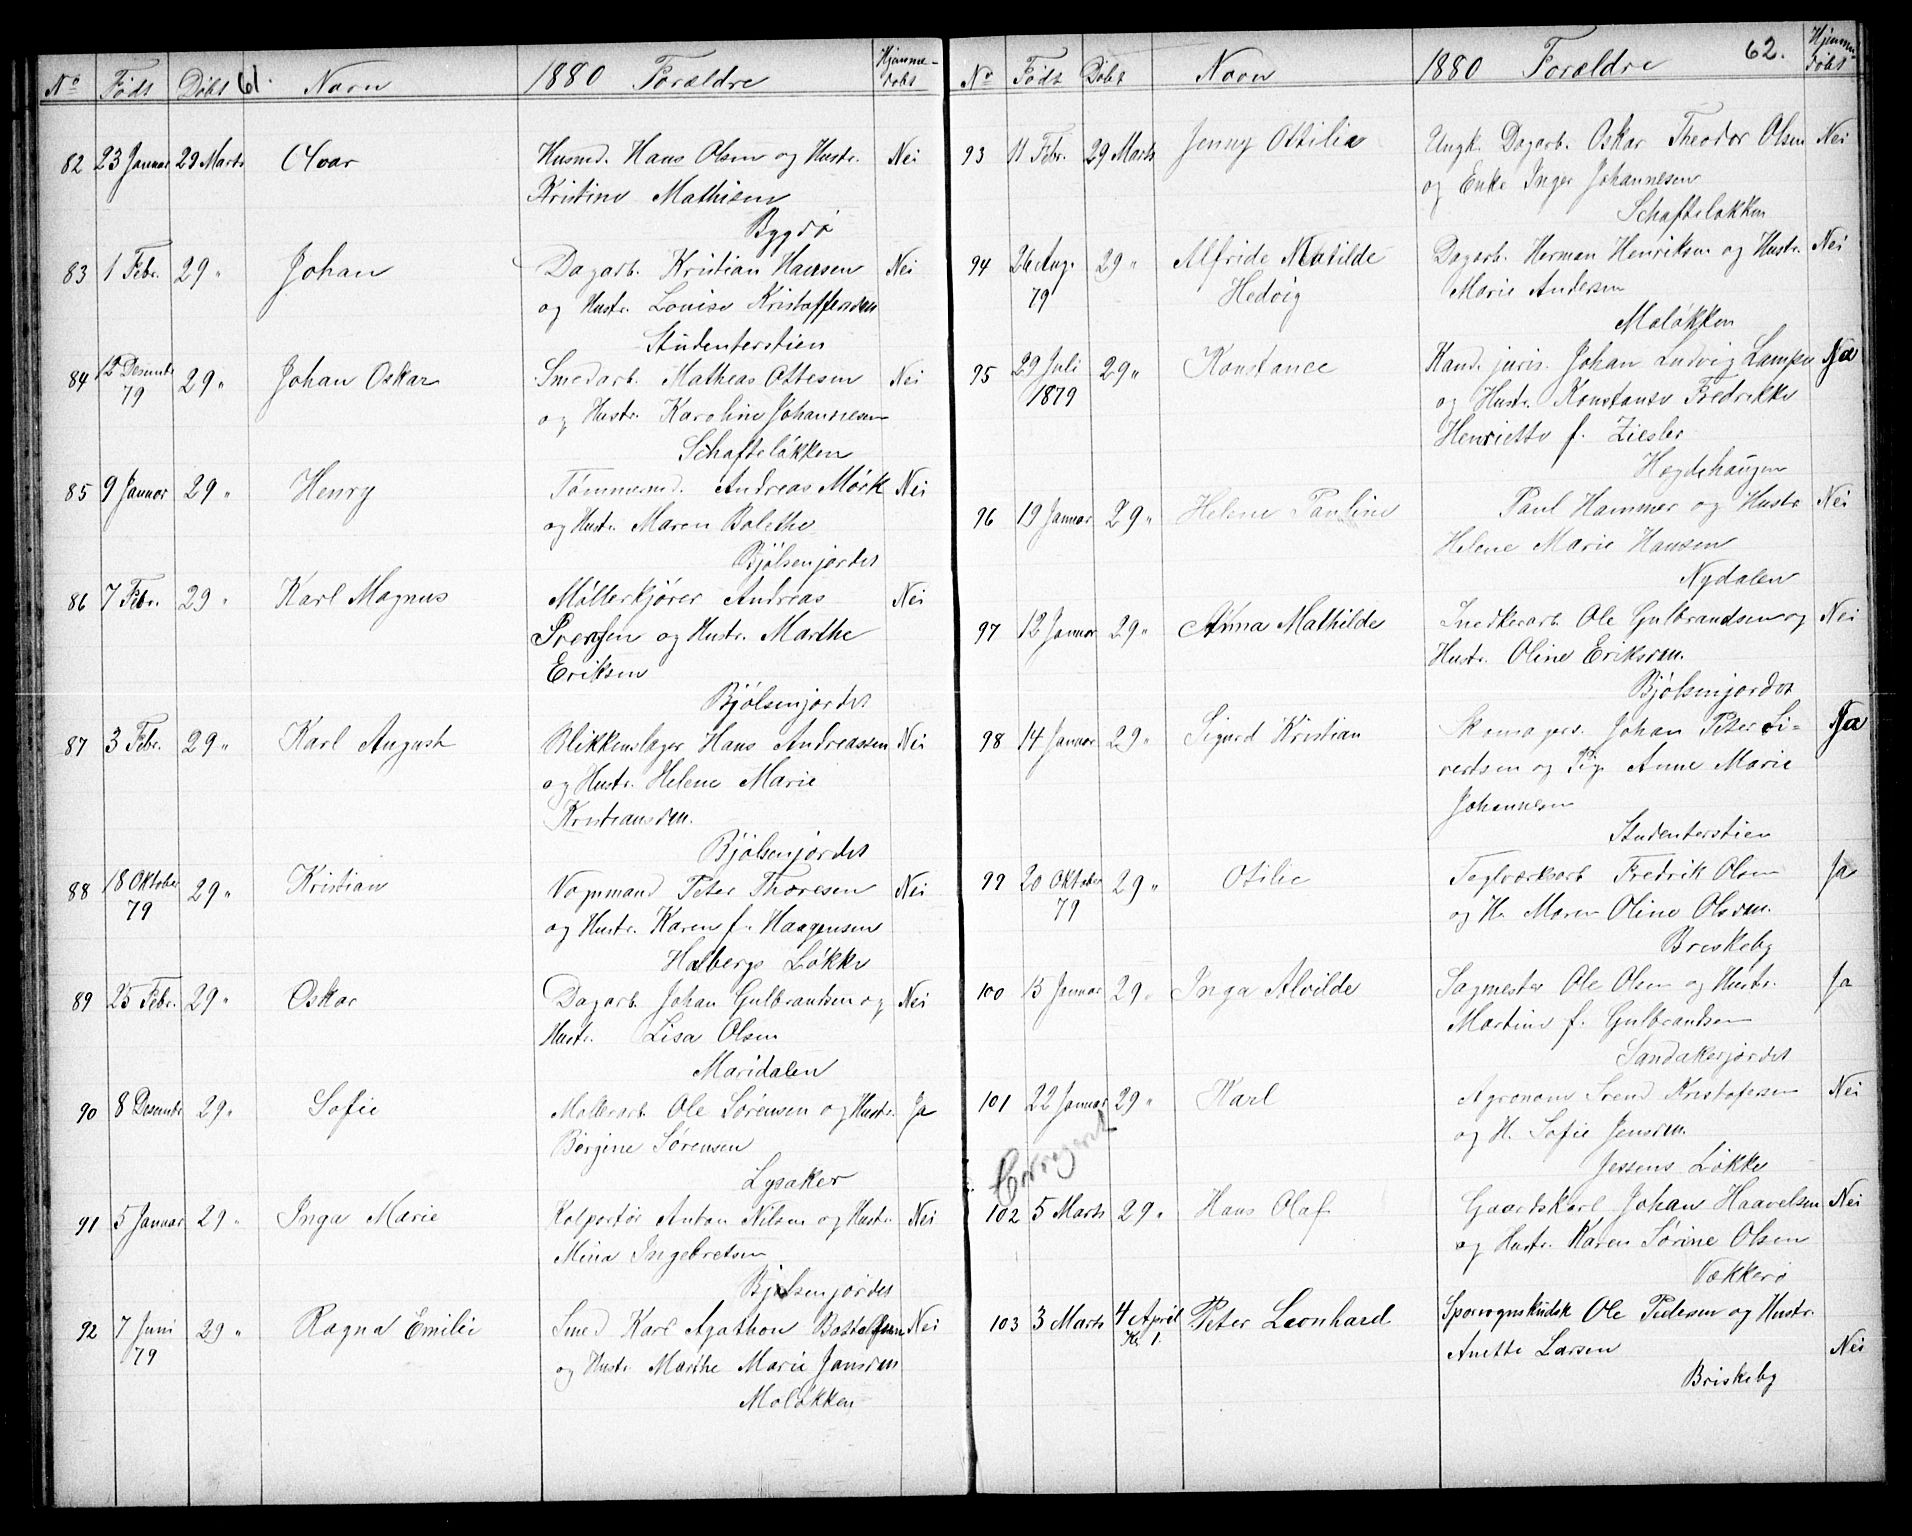 61.
No Födt Döbt Navn 1880 Forældre Hjemmedöbt
82 23 Januar 29 Marts Olvar Husmd. Hans Olsen og Hustr. Nei
Kristine Mathisen
Bygdö
83 1 Febr. 29 " Johan Dagarb. Kristian Hansen Nei
og Hustr. Louise Kristoffersen
Studenterstien
84 12 Desembr 79 29 " Johan Oskar Smedarb. Matheas Ottesen Nei
og Hustr. Karoline Johannesen
Schafteløkken
85 9 Januar 29 " Henry Tømmermd. Andreas Mörk Nei
og Hustr. Maren Bolethe
Bjølsenjordet
86 7 Febr. 29 " Karl Magnus Møllerkjører Andreas Nei
Svensen og Hustr. Marthe
Eriksen
Bjølsenjordet
87 3 Febr. 29 " Karl August Blikkenslager Hans Andreassen Nei
og Hustr. Helene Marie
Kristiansen.
Bjølsenjordet
88 18 Oktober 79 29 " Kristian Vognmand Peter Thoresen Nei
og Hustr. Karen f. Haagensen
Holbergs Løkke
89 25 Febr. 29 " Oskar Dagarb. Johan Gulbrandsen og Nei
Hustr. Lisa Olsen
Maridalen
90 8 Desembr 29 " Sofie Møllerarb. Ole Sørensen og Hustr. Ja
Børgine Sørensen
Lysaker
91 5 Januar 29 " Inga Marie Kolportør Anton Nilsen og Hustr. Nei
Mina Ingebretsen
Bjølsenjordet
92 7 Juni 79 29 " Ragna Emilie Smed Karl Agathon Bottolfsen Nei
og Hustr. Marthe Marie Jansen
Moløkken
62.
No Födt Döbt Navn 1880 Forældre Hjemmedöbt
93 11 Febr. 29 Marts Jenny Ottilie Ungk. Dagarb. Oskar Theodor Olsen Nei
og Enke Inger Johannesen
Schafteløkken
94 26 Aug. 79 29 " Alfride Matilde Hedvig Dagarb. Herman Henriksen og Hustr. Nei
Marie Andersen
Moløkken
95 29 Juli 1879 29 " Konstance Kand. juris. Johan Ludvig Lampe Ja
og Hustr. Konstanse Fredrikke
Henriette f. Ziesler
Hægdehaugen
96 19 Januar 29 " Helene Pauline Paul Hammer og Hustr. Nei
Helene Marie Hansen
Nydalen
97 12 Januar 29 " Anna Mathilde Snedkerarb. Ole Gulbrandsen og Nei
Hustr. Oline Eriksen.
Bjølsenjordet
98 14 Januar 29 " Sigurd Kristian Skomagers. Johan Peter Si- Ja
vertsen og Pig. Anne Marie
Johannesen
Studenterstien
99 20 Oktober 79 29 " Otilie Teglværksarb. Fredrik Olsen Ja
og H. Maren Oline Olsen.
Breskeby
100 15 Januar 29 " Inga Alvilde Sagmester Ole Olsen og Hustr. Ja
Martine f. Gulbrandsen
Sandakerjordet
101 22 Januar 29 " Karl Agronom Svend Kristofersen Nei
og H. Sofie Jensen.
Jessens Løkke
Corrigeret
102 5 Marts 29 " Hans Olaf Gaardskarl Johan Haavelsen Nei
og Hustr. Karen Sørine Olsen
Vækkerø
103 3 Marts 4 April Kl. 1. Peter Leonhard Sporvognskudsk Ole Pedersen og Hustr.
Anette Larsen Nei
Briskeby